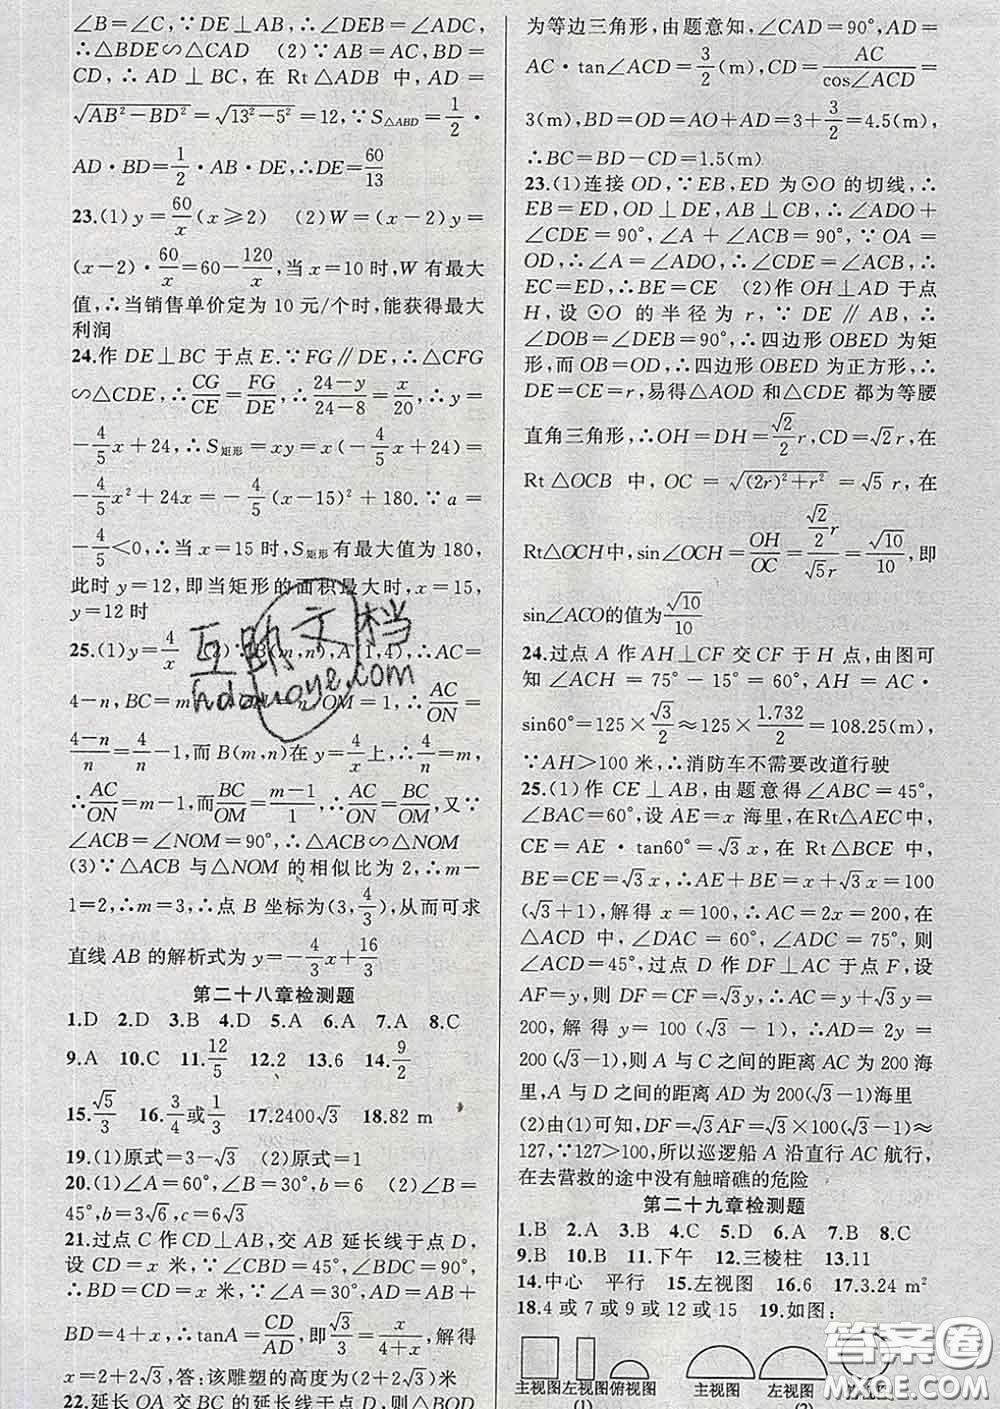 ∠B=∠C,又∵DE⊥AB,∴∠DEB=∠ADC,
∴△BDE∽△CAD (2)∵AB=AC,BD=
CD,∴AD⊥BC,在Rt△ADB中,AD=
√(AB²-BD²)=√(13²-5²)=12,∵S△ABD=1/2·
AD·BD=1/2·AB·DE,∴DE=60/13
23.(1)y=60/x(x≥2) (2)W=(x-2)y=
(x-2)·60/x=60-120/x,当x=10时,W有最大
值,∴当销售单价定为10元/个时,能获得最大
利润
24.作DE⊥BC于点E.∵FG∥DE,∴△CFG
∽△CDE,∴CG/CE=FG/DE,∴(24-y)/(24-8)=x/20,∴y=
-4/5x+24,∴S矩形=xy=x(-4/5x+24)=
-4/5x²+24x=-4/5(x-15)²+180.∵a=
-4/5<0,∴当x=15时,S矩形有最大值为180,
此时y=12,即当矩形的面积最大时,x=15,
y=12时
25.(1)y=4/x (2)∵B(m,n),A(1,4),∴AC=
4-n,BC=m n,OM=1,∴AC/ON=
(4-n)/n=4/n-1,而B(m,n)在y=4/x上,∴4/n=m,
∴AC/ON=m-1,而BC/OM=(m-1)/1,∴AC/ON=BC/OM,又∵
∠ACB=∠NOM=90°,∴△ACB∽△NOM
(3)∵△ACB与△NOM的相似比为2,∴m-
1=2,∴m=3,∴点B坐标为(3,4/3),从而可求
直线AB的解析式为y=-4/3x+16/3
第二十八章检测题
1.D 2.D 3.B 4.D 5.A 6.A 7.A 8.C
9.A 10.C 11.12/5 12.2 13.6 14.9/2
15.√5/3 16.3/4或1/3 17.2400√3 18.82 m
19.(1)原式=3-√3 (2)原式=1
20.(1)∠A=60°,∠B=30°,b=6 (2)∠B=
45°,b=3√6,c=6√3
21.过点C作CD⊥AB,交AB延长线于点D,
设CD=x米,∵∠CBD=45°,∠BDC=90°,
∴BD=CD=x米,∵∠A=30°,AD=AB+
BD=4+x,∴tanA=CD/AD,即√3/3=x/(4+x),解得
x=2+2√3,答:该雕塑的高度为(2+2√3)米
22.延长OA交BC的延长线于点D,则△BOD
为等边三角形,由题意知,∠CAD=90°,AD=
AC·tan∠ACD=3/2(m),CD=AC/cos∠ACD=
3(m),BD=OD=AO+AD=3+3/2=4.5(m),
∴BC=BD-CD=1.5(m)
23.(1)连接OD,∵EB,ED为⊙O的切线,∴
EB=ED,OD⊥DE,AB⊥CB,∴∠ADO+
∠CDE=90°,∠A+∠ACB=90°,∵OA=
OD,∴∠A=∠ADO,∴∠CDE=∠ACB,∴
EC=ED,∴BE=CE (2)作OH⊥AD于点
H,设⊙O的半径为r,∵DE∥AB,∴
∠DOB=∠DEB=90°,∴四边形OBED为矩
形,而OB=OD,∴四边形OBED为正方形,∴
DE=CE=r,易得△AOD和△CDE都为等腰
直角三角形,∴OH=DH=√2/2r,CD=√2r,在
Rt△OCB中,OC=√((2r)²+r²)=√5r,在
Rt△OCH中,sin∠OCH=OH/OC=(√2/2r)/(√5r)=√10/10,即
sin∠ACO的值为√10/10
24.过点A作AH⊥CF交CF于H点,由图可
知∠ACH=75°-15°=60°,AH=AC·
sin60°=125×√3/2≈125×1.732/2=108.25(m),
∵AH>100米,∴消防车不需要改道行驶
25.(1)作CE⊥AB,由题意得∠ABC=45°,
∠BAC=60°,设AE=x海里,在Rt△AEC中,
CE=AE·tan60°=√3x,在Rt△BCE中,
BE=CE=√3x,∴AE+BE=x+√3x=100
(√3+1),解得x=100,∴AC=2x=200,在
△ACD中,∠DAC=60°,∠ADC=75°,则
∠ACD=45°,过点D作DF⊥AC于点F,设
AF=y,则DF=CF=√3y,∴AC=y+√3y=
200,解得y=100(√3-1),∴AD=2y=
200(√3-1),则A与C之间的距离AC为200海
里,A与D之间的距离AD为200(√3-1)海里
(2)由(1)可知,DF=√3AF=√3×100(√3-1)≈
127,∵127>100,所以巡逻船A沿直行AC航行,
在去营救的途中没有触暗礁的危险
第二十九章检测题
1.B 2.A 3.B 4.C 5.D 6.A 7.B 8.C
9.B 10.B 11.下午 12.三棱柱 13.11
14.中心 平行 15.左视图 16.6 17.3.24 m²
18.4或7或9或12或15 19.如图:
主视图 左视图 俯视图 主视图 左视图
(1) (2)
互助文档
hdzuoye.com
答案圈
MXQE.COM